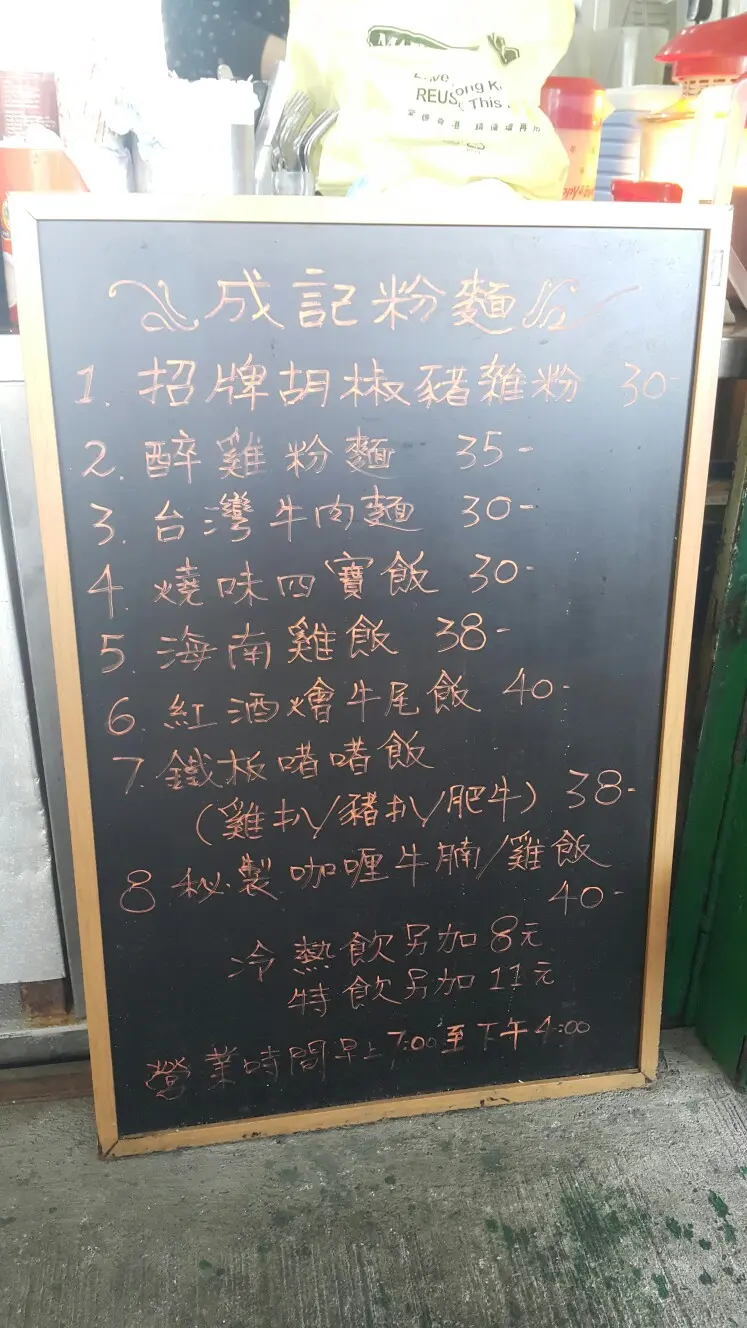 Love Hong K
REUSE This
愛護香港 請循環再用
成記粉麵
1. 招牌胡椒豬雜粉 30-
2. 醉雞粉麵 35-
3. 台灣牛肉麵 30-
4. 燒味四寶飯 30-
5. 海南雞飯 38-
6. 紅酒燴牛尾飯 40-
7. 鐵板啫啫飯
(雞扒/豬扒/肥牛) 38-
8 秘製咖喱牛腩/雞飯
40-
冷熱飲另加8元
特飲另加11元
營業時間早上7:00至下午4:00